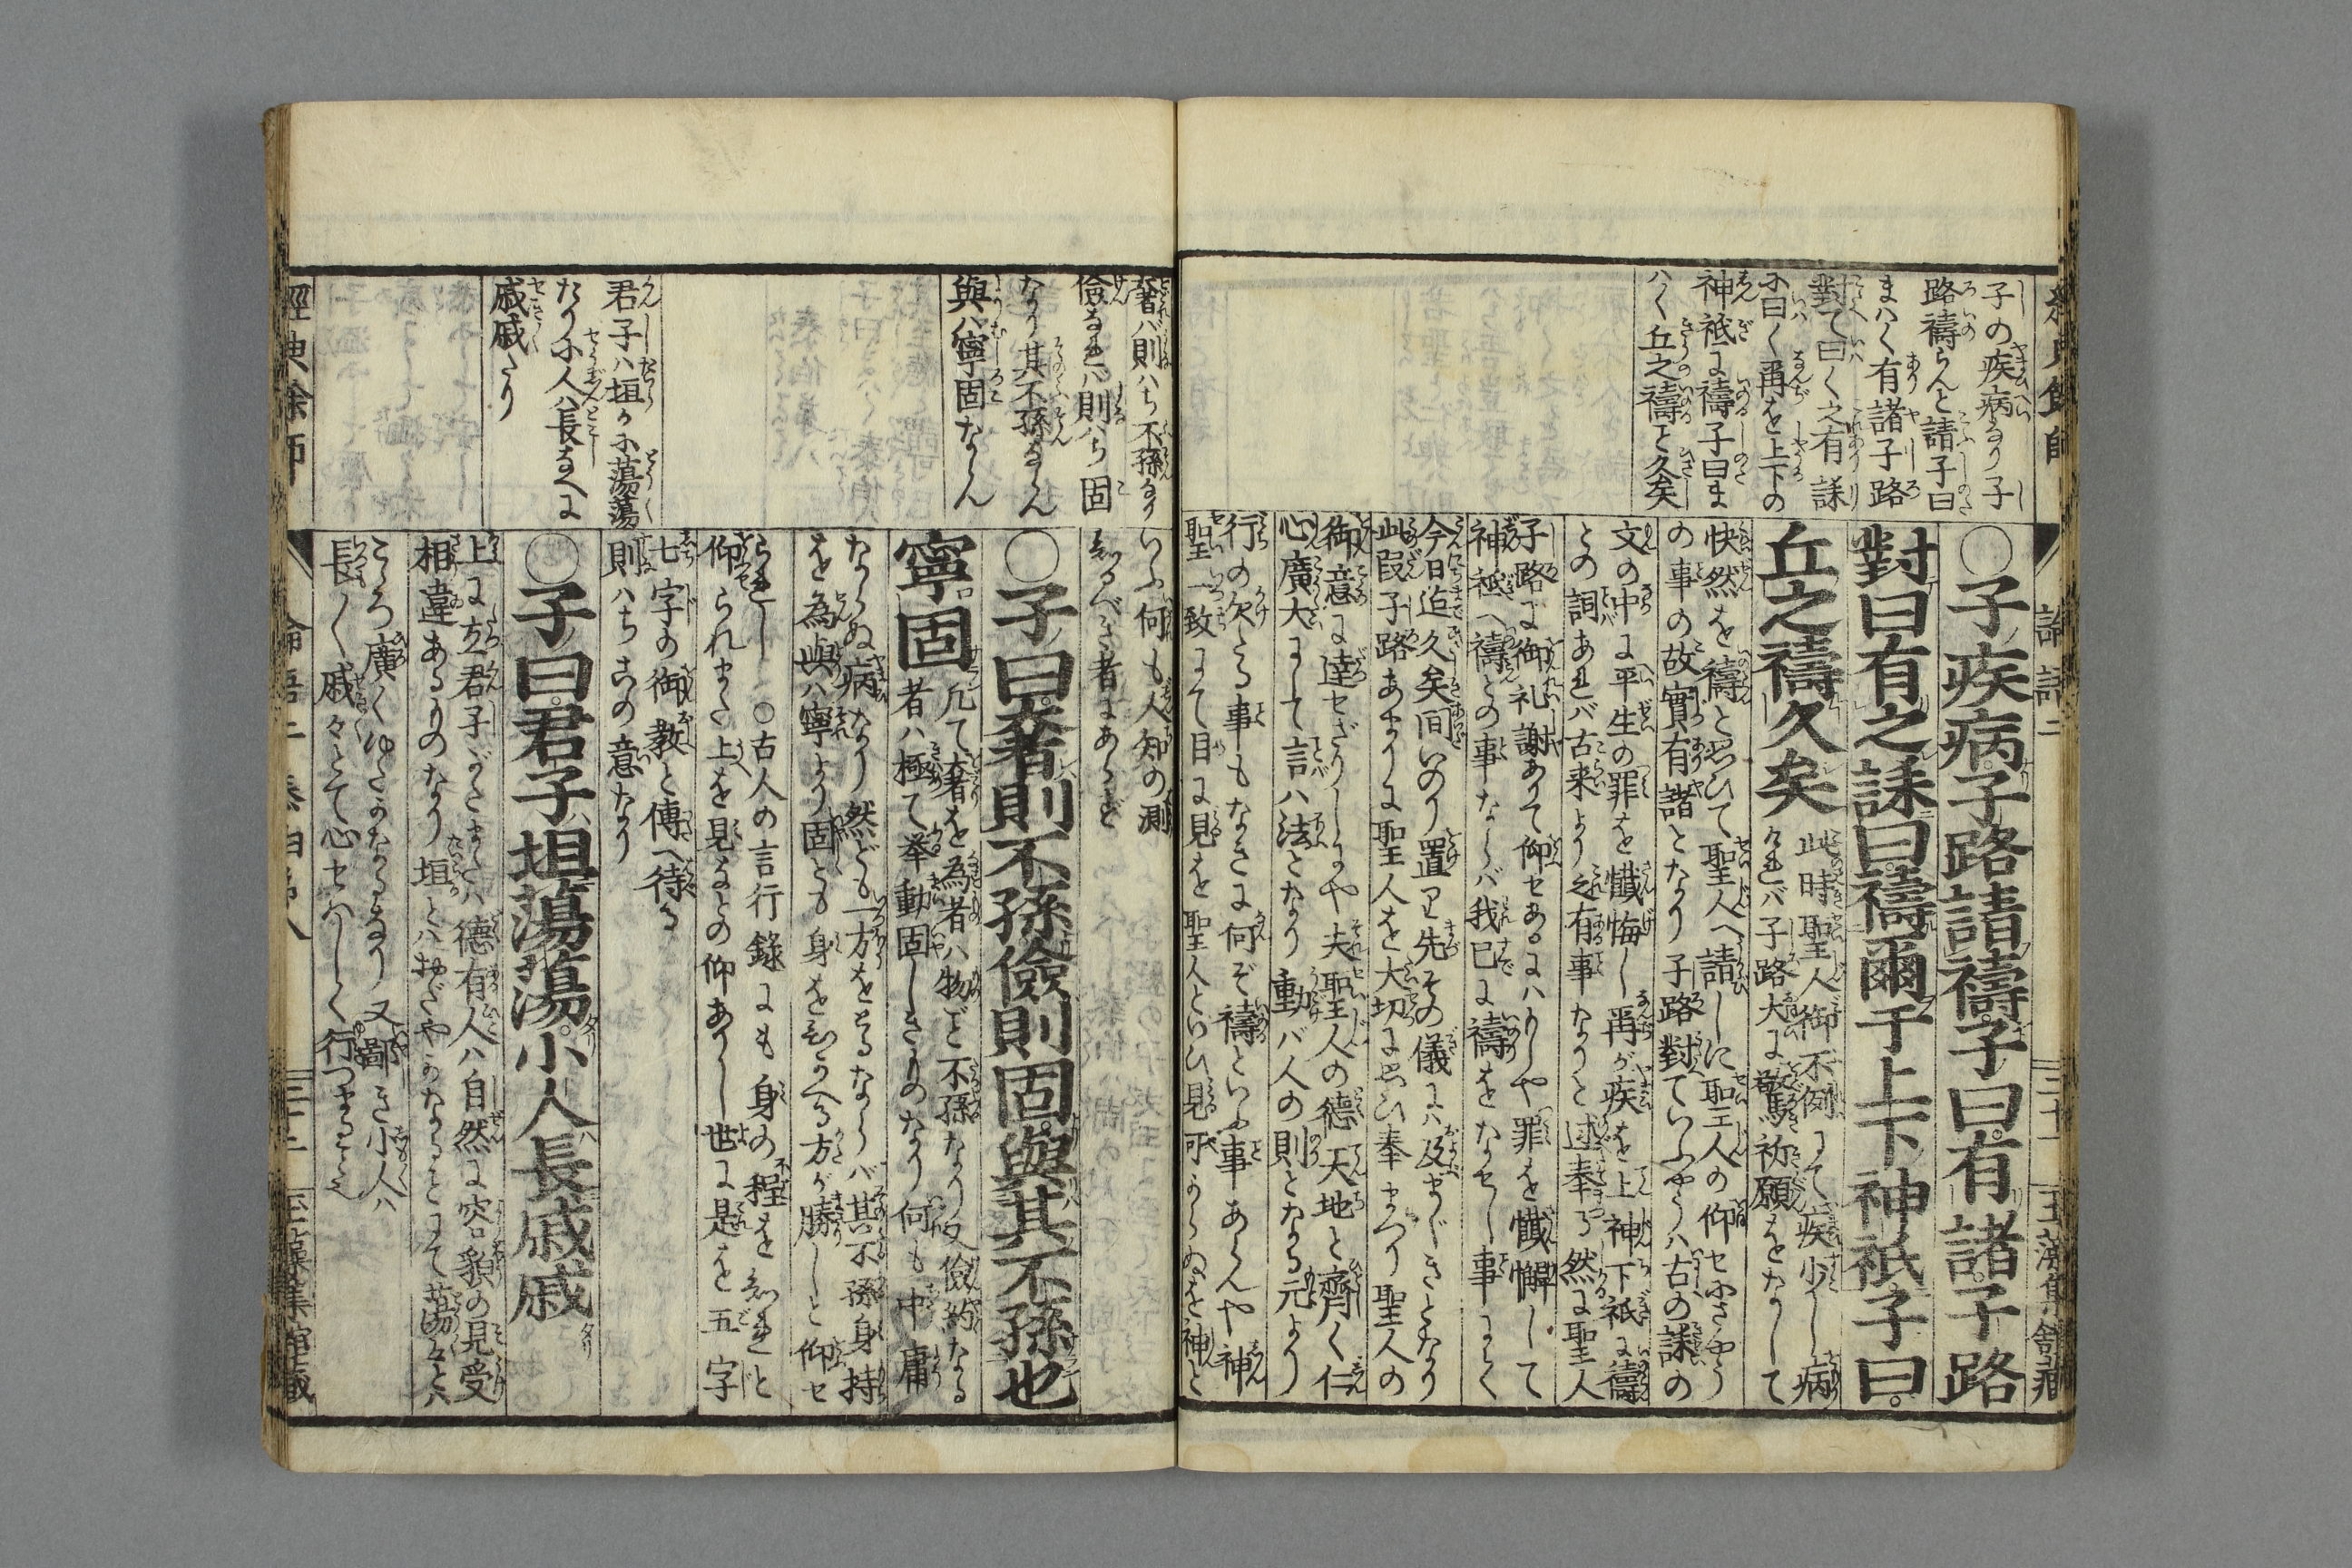 子の疾病なり子
路禱らんと請子曰
まハく有諸子路
對て曰く之有誄
に曰く爾を上下の
神祇に禱子曰ま
ハく丘之禱こと久矣
論語二
三十一
〇子疾病子路請禱子曰有諸子路
對曰有之誄曰禱爾于上下神祇子曰
丘之禱久矣
此時聖人御不例にて疾少しく病
けれバ子路大に驚き祈願をなして
快然を禱と思ひて聖人へ請しに聖人の仰せにさやう
の事の故實有諸となり子路對ていふやうハ古の誄の
文の中に平生の罪を懺悔し爾が疾を上神下祇に禱
との詞あれバ古来より之有事なりと述奉る然に聖人
子路に御礼謝ありて仰せあるにハ
神祇へ禱との事ならバ我已に禱をなせし事にて
今日迄久矣間いのり置り先その儀にハ及まじきとなり
此段子路あまりに聖人を大切に思ひ奉まつり聖人の
御意に達せざりしにや夫聖人の德天地と齊く仁
心廣大にして言ハ法となり動バ人の則となる元より
行の欠たる事もなきに何ぞ禱といふ事あらんや神
聖一致にて目に見を聖人といひ見可からぬを神と
奢バ則ハち不孫なり
儉なれバ則ハち固
なり其不孫ならん
與ハ寧固ならん
君子ハ坦かに蕩蕩
たり小人ハ長なへに
戚戚たり
いふ何も人知の測
知るべき者にあらず
〇子曰奢則不孫儉則固與其不孫也
寧固
凡て奢を為者ハ物ごと不孫なり又儉約なる
者ハ極て挙動固しきものなり何も中庸
ならぬ病なり然ども一方をとるならバ其不孫身持
を為與ハ寧より固とも身をひかへる方が勝しと仰せ
られし〇古人の言行錄にも身の程を知れと
仰られまた上を見なとの仰ありし世に是を五字
七字の御教と傳へ待る
則ハち古の意なり
〇子曰君子坦蕩蕩小人長戚戚
上に立君子がたまたハ德有人ハ自然に容貌の見受
相違あるものなり坦とハおだやかなることにて蕩々とハ
こころ廣くゆたかなるなり又鄙き小人ハ
長く戚々とて心せハしく行つまること也
經典餘師